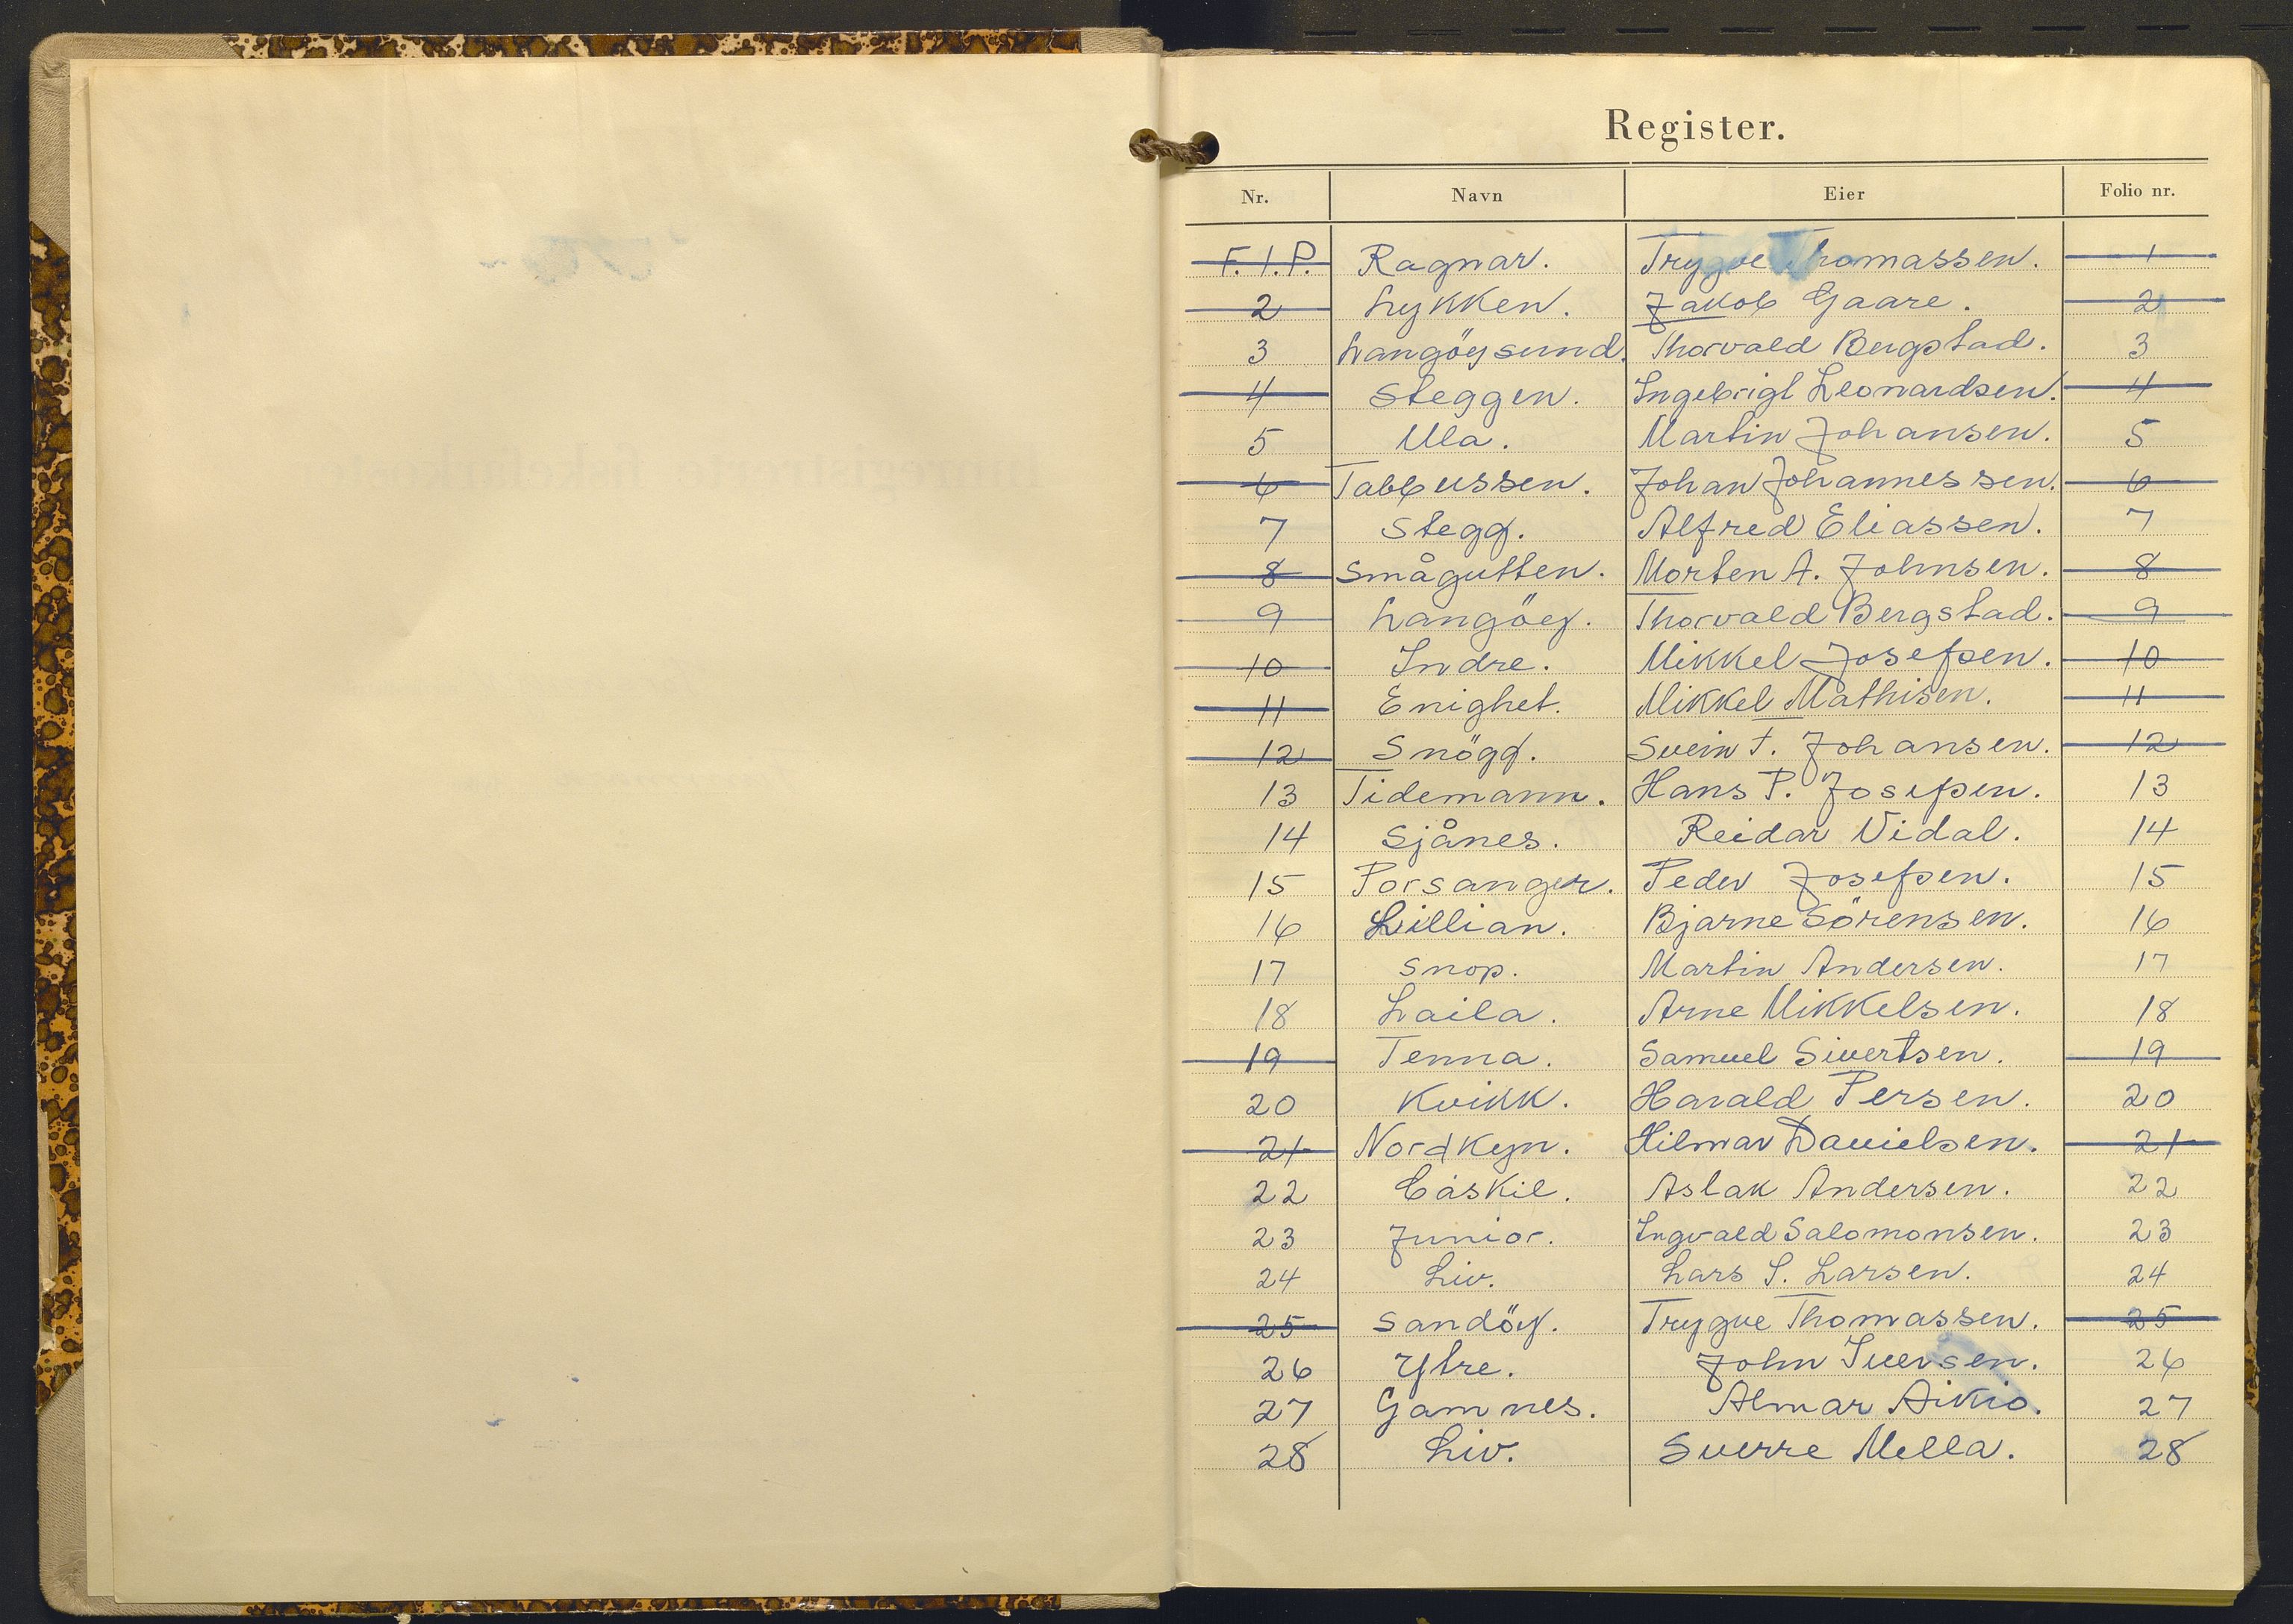 Register.
Nr. Navn Eier Folio nr.
F. 1. P. Ragnar. Trygve Thomassen. 1
2 Lykken. Jakob Gaare. 2
3 Langöysund. Thorvald Bergstad. 3
4 Steggen. Ingebrigt Leonardsen. 4
5 Ula. Martin Johansen. 5
6 Tabbussen. Johan Johannessen. 6
7 Stegg. Alfred Eliassen. 7
8 Smågutten. Morten A. Johnsen. 8
9 Langöy. Thorvald Bergstad. 9
10 Indre. Mikkel Josefsen. 10
11 Enighet. Mikkel Mathisen. 11
12 Snögg. Svein T. Johansen. 12
13 Tidemann. Hans P. Josefsen. 13
14 Sjånes. Reidar Vidal. 14
15 Porsanger. Peder Josefsen. 15
16 Lillian. Bjarne Sörensen. 16
17 Snop. Martin Andersen. 17
18 Laila. Arne Mikkelsen. 18
19 Tenna. Samuel Sivertsen. 19
20 Kvikk. Harald Persen. 20
21 Nordkyn. Hilmar Danielsen. 21
22 Aslak Andersen. 22
23 Junior. Ingvald Salomonsen. 23
24 Liv. Lars S. Larsen. 24
25 Sandöy. Trygve Thomassen. 25
26 Ytre. John Iversen. 26
27 Gamnes. Almar Aikio. 27
28 Liv. Sverre Mella. 28